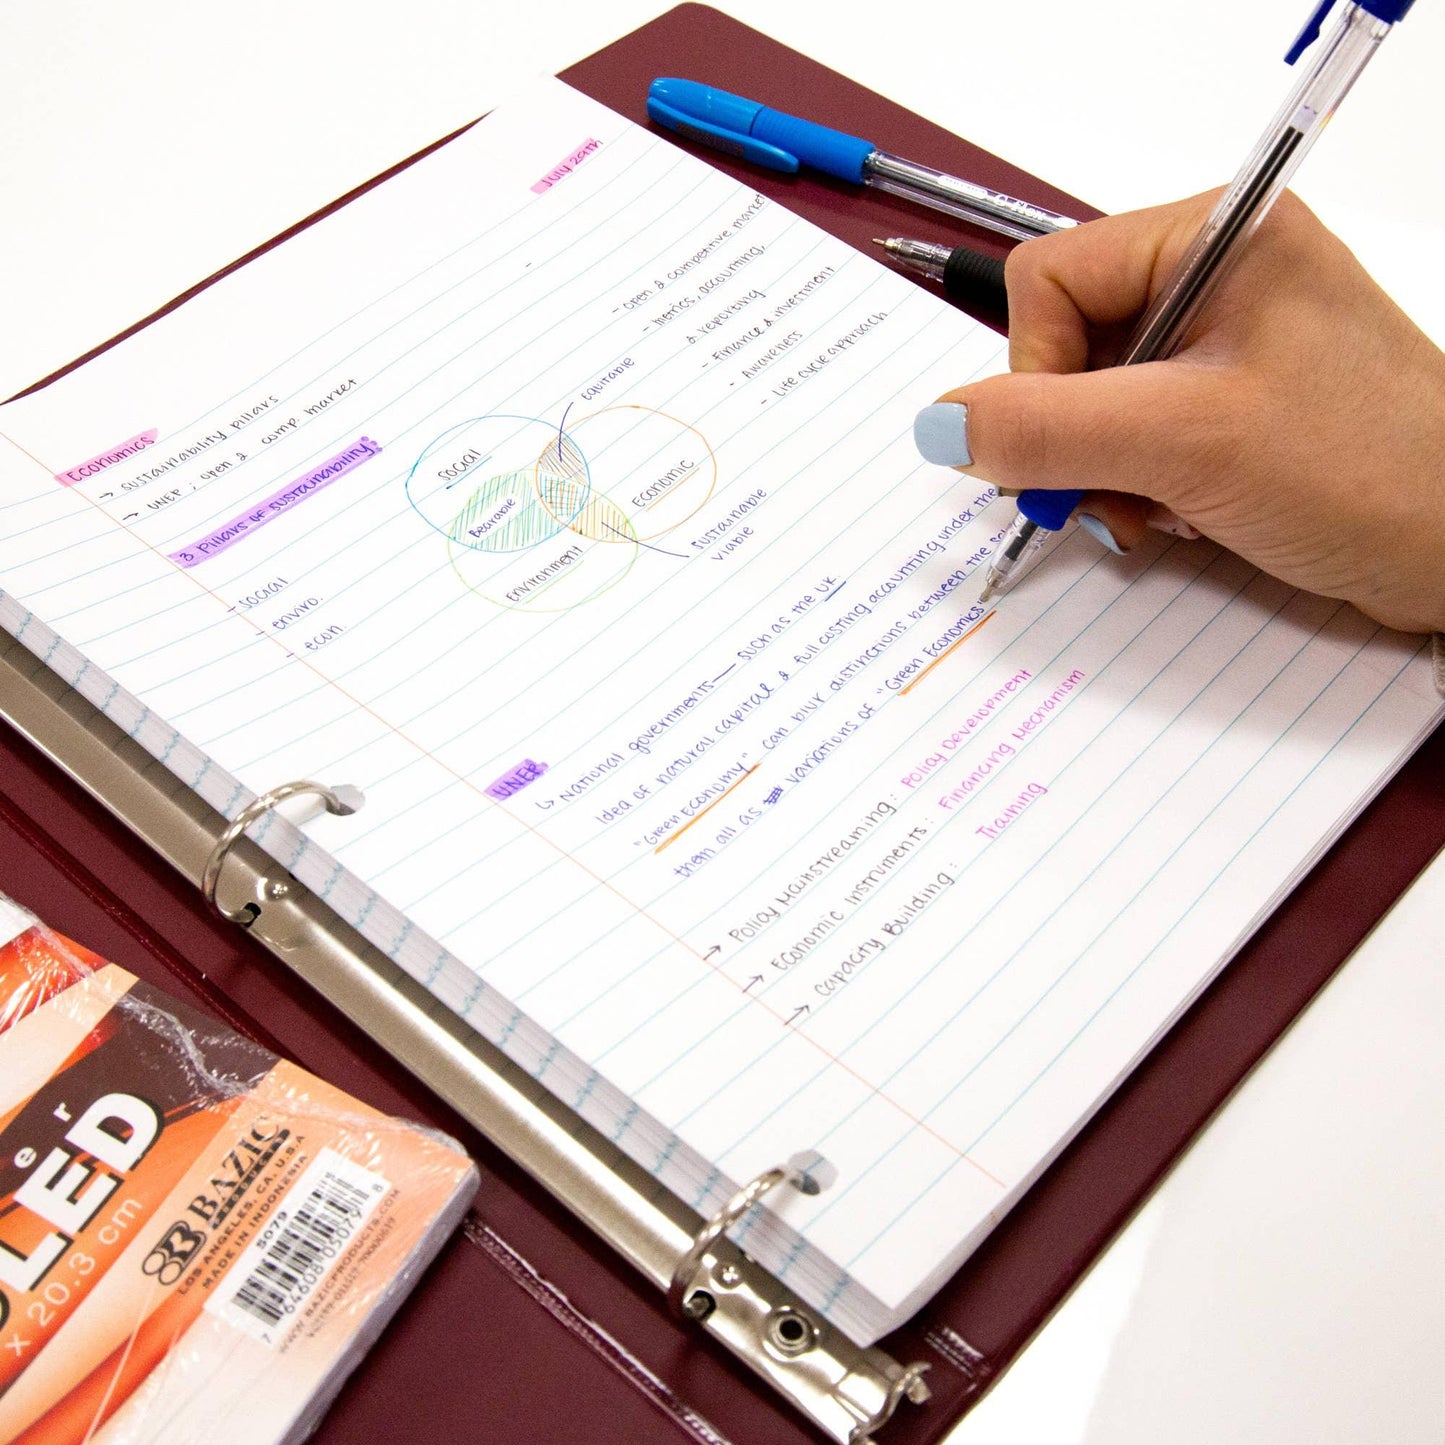 July 29th
Economics
→ sustainability pillars
→ UNEP ; open & comp. market
3 Pillars of sustainability:
- social
- enviro.
- econ.
social
Economic
Environment
Bearable
equitable
sustainable
viable
- open & competitive market
- metrics, accounting,
& reporting
- Finance & investment
- Awareness
- Life cycle approach
UNEP
↳ National governments — such as the UK
Idea of natural capital & full costing accounting under the
"Green Economy" can blur distinctions between the
them all as variations of "Green Economics"
→ Policy Mainstreaming : Policy Development
→ Economic Instruments : Financing Mechanism
→ Capacity Building : Training
er
LED
x 20.3 cm
BAZIC
PRODUCTS
LOS ANGELES, CA. U.S.A
MADE IN INDONESIA
5079
7 64608 05079 8
WWW.BAZICPRODUCTS.COM